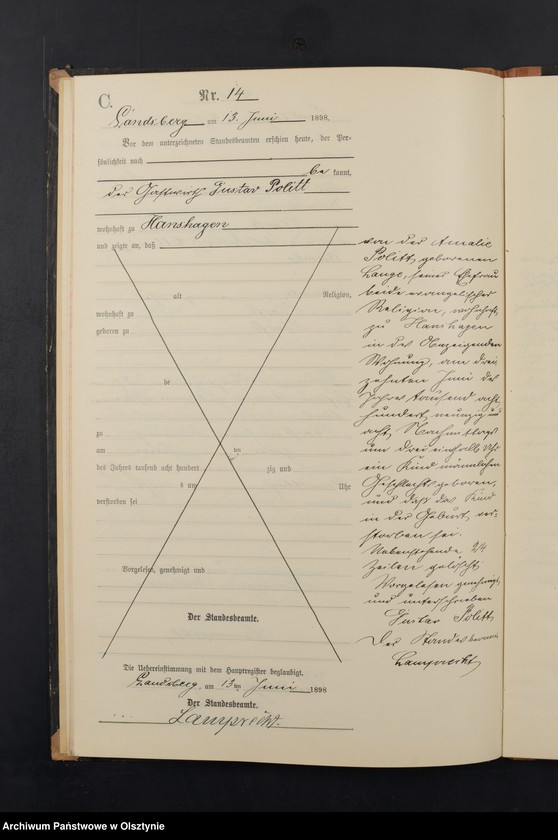 C.
Nr. 14
Landsberg am 13. Juni 1898.
Vor dem unterzeichneten Standesbeamten erschien heute, der Per-
sönlichkeit nach
be kannt,
der Gastwirth Gustav Politt
wohnhaft zu Hanshagen
und zeigte an, daß
alt Religion,
wohnhaft zu
geboren zu
be
zu
am ten
des Jahres tausend acht hundert zig und
s um Uhr
verstorben sei
Vorgelesen, genehmigt und
Der Standesbeamte.
von der Amalie
Politt, geborenen
Lange, seiner Ehefrau
beide evangelischer
Religion, wohnhaft
zu Hanshagen
in der Anzeigenden
Wohnung, am drei
zehnten Juni des
Jahres tausend acht
hundert neunzig und
acht, Nachmittags
um dreieinhalb Uhr
ein Kind männlichen
Geschlechts geboren,
und daß das Kind
in der Geburt ver-
storben sei.
Nebenstehende 24
Zeilen gelöscht
Vorgelesen genehmigt
und unterschrieben
Gustav Politt
Der Standesbeamte
Lamprecht
Die Uebereinstimmung mit dem Hauptregister beglaubigt.
Landsberg, am 13ten Juni 1898
Der Standesbeamte.
Lamprecht.
Archiwum Państwowe w Olsztynie